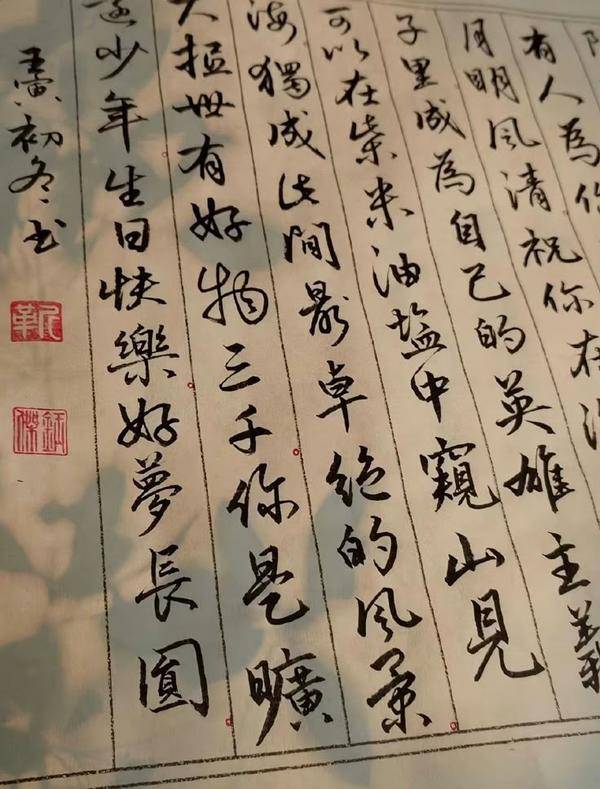 有人為你
月明風清祝你在
子里成為自己的英雄主義
可以在柴米油鹽中窺山見
海獨成此間最卓絕的風景
大抵世有好物三千你是曠
遠少年生日快樂好夢長圓
壬寅初冬书